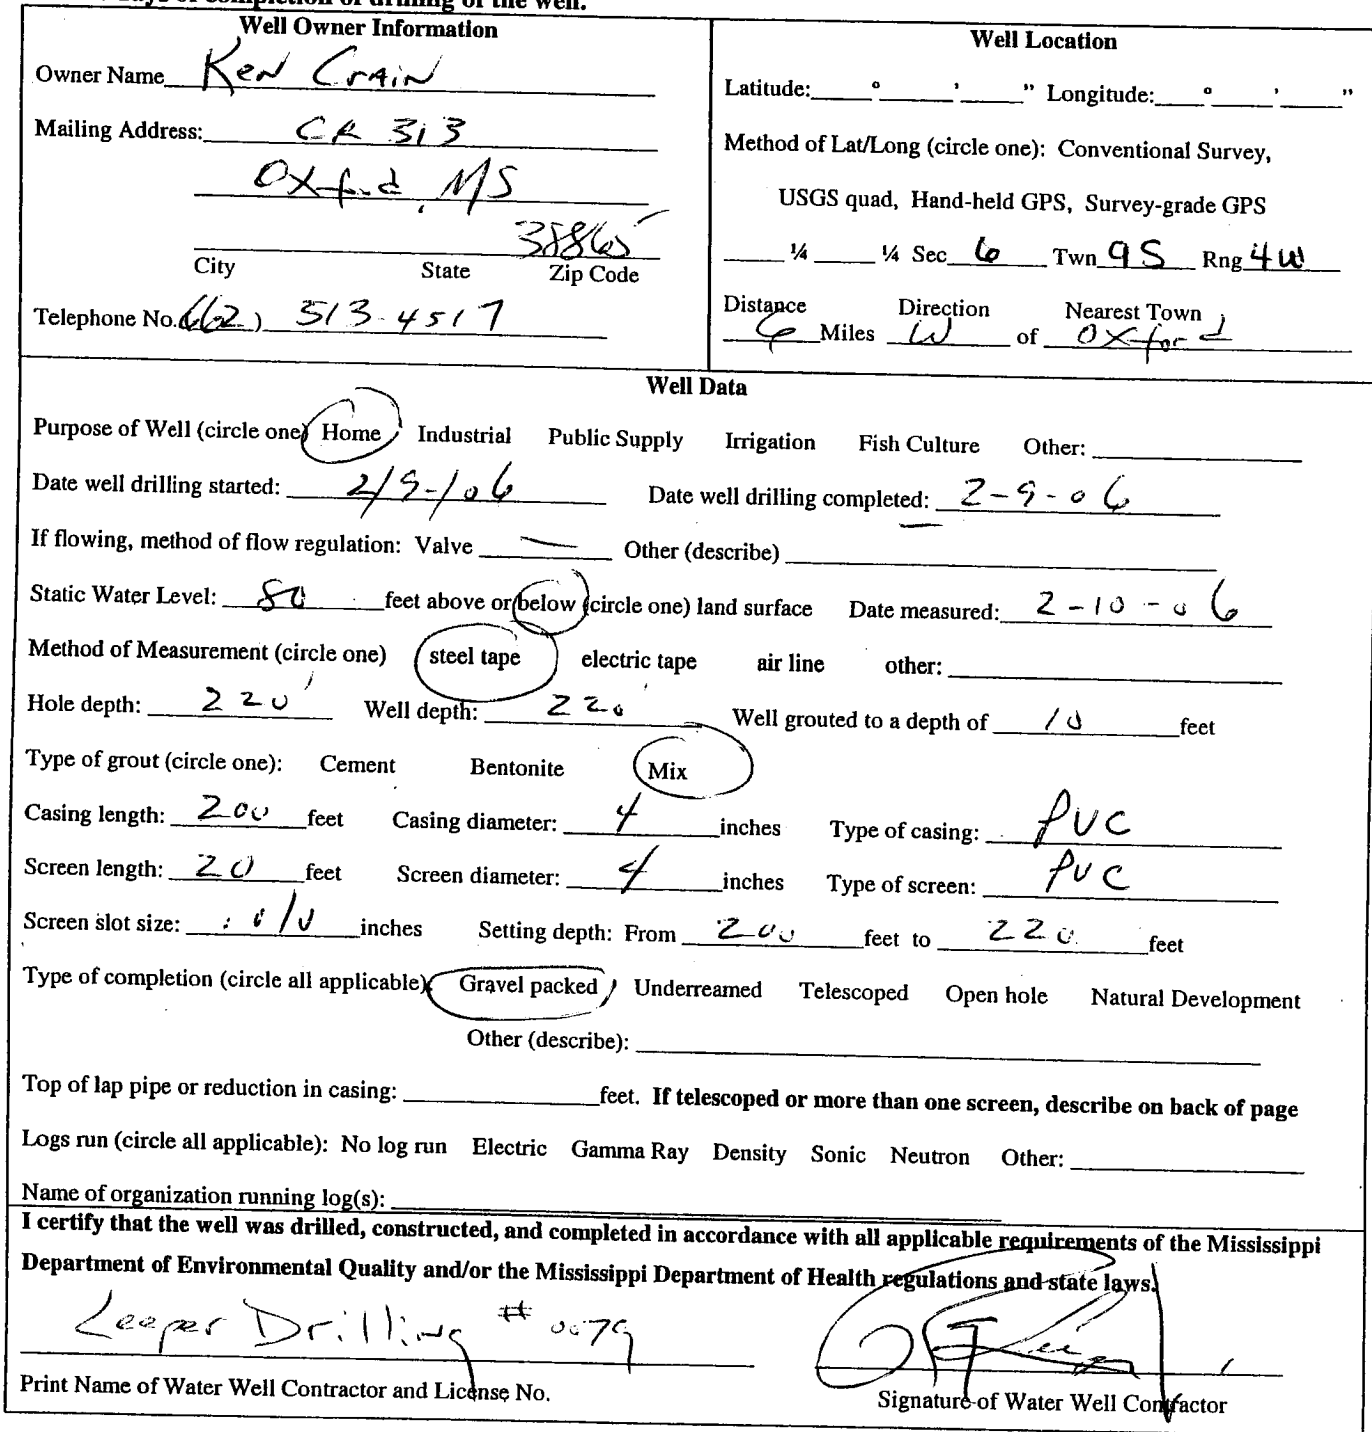 days of completion or drilling of the well.
Well Owner Information
Owner Name Ken Crain
Mailing Address: CR 313
Oxford, MS
38865
City State Zip Code
Telephone No. (662) 513-4517
Well Location
Latitude: ° ' " Longitude: ° ' "
Method of Lat/Long (circle one): Conventional Survey,
USGS quad, Hand-held GPS, Survey-grade GPS
¼ ¼ Sec 6 Twn 9S Rng 4W
Distance Direction Nearest Town
6 Miles W of Oxford
Well Data
Purpose of Well (circle one) Home Industrial Public Supply Irrigation Fish Culture Other:
Date well drilling started: 2/9-/06 Date well drilling completed: 2-9-06
If flowing, method of flow regulation: Valve — Other (describe)
Static Water Level: 80 feet above or below (circle one) land surface Date measured: 2-10-06
Method of Measurement (circle one) steel tape electric tape air line other:
Hole depth: 220' Well depth: 220' Well grouted to a depth of 10 feet
Type of grout (circle one): Cement Bentonite Mix
Casing length: 200 feet Casing diameter: 4 inches Type of casing: PVC
Screen length: 20 feet Screen diameter: 4 inches Type of screen: PVC
Screen slot size: .010 inches Setting depth: From 200 feet to 220 feet
Type of completion (circle all applicable) Gravel packed Underreamed Telescoped Open hole Natural Development
Other (describe):
Top of lap pipe or reduction in casing: feet. If telescoped or more than one screen, describe on back of page
Logs run (circle all applicable): No log run Electric Gamma Ray Density Sonic Neutron Other:
Name of organization running log(s):
I certify that the well was drilled, constructed, and completed in accordance with all applicable requirements of the Mississippi
Department of Environmental Quality and/or the Mississippi Department of Health regulations and state laws.
Leeper Drilling # 0079
Print Name of Water Well Contractor and License No.
Signature of Water Well Contractor